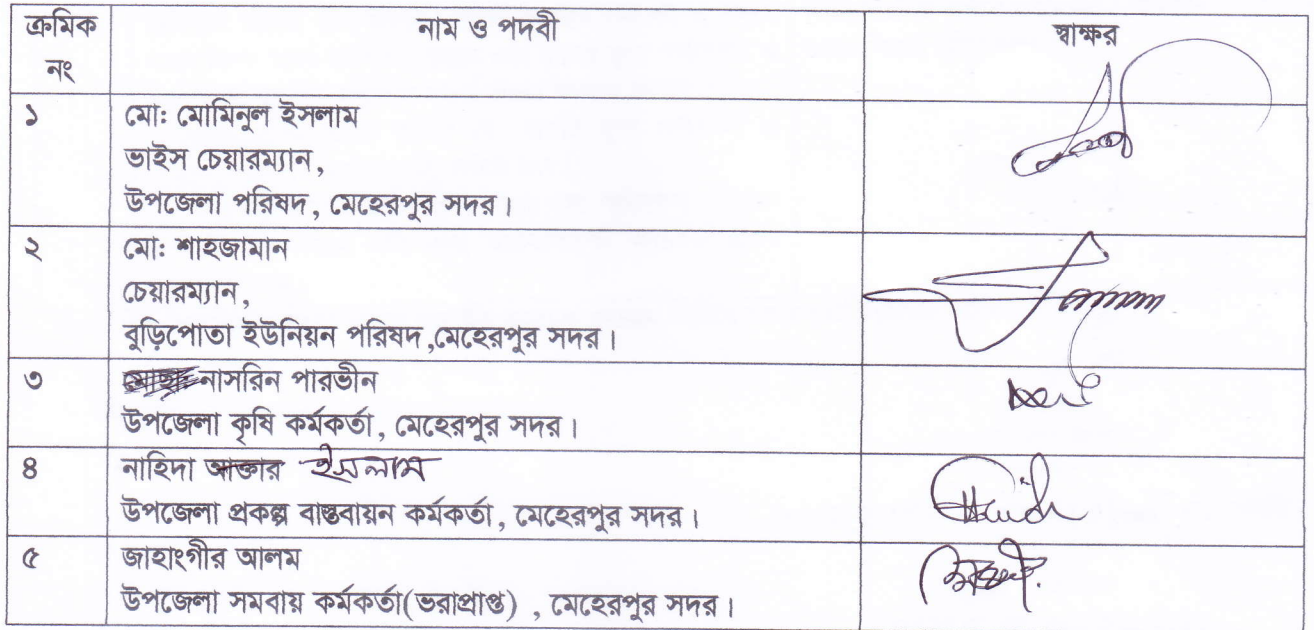 ক্রমিক নাম ও পদবী স্বাক্ষর
নং
১ মো: মোমিনুল ইসলাম
ভাইস চেয়ারম্যান,
উপজেলা পরিষদ, মেহেরপুর সদর।
২ মো: শাহজামান
চেয়ারম্যান,
বুড়িপোতা ইউনিয়ন পরিষদ,মেহেরপুর সদর।
৩ নাসরিন পারভীন
উপজেলা কৃষি কর্মকর্তা, মেহেরপুর সদর।
৪ নাহিদা আক্তার ইসলাম
উপজেলা প্রকল্প বাস্তবায়ন কর্মকর্তা, মেহেরপুর সদর।
৫ জাহাংগীর আলম
উপজেলা সমবায় কর্মকর্তা(ভরাপ্রাপ্ত) , মেহেরপুর সদর।